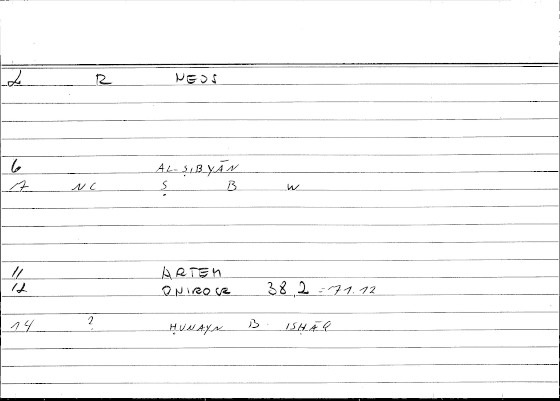 2 R NEDS
6 AL-ṢIBYĀN
7 NC Ṣ B W
11 ARTEM
12 ONIROCR 38,2 = 71.12
14 ? ḤUNAYN B. ISḤĀQ